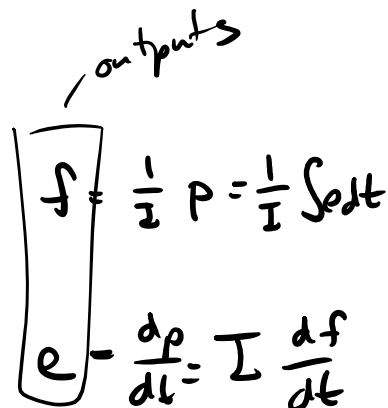 outputs
f = 1/I p = 1/I ∫edt
e = dp/dt = I df/dt